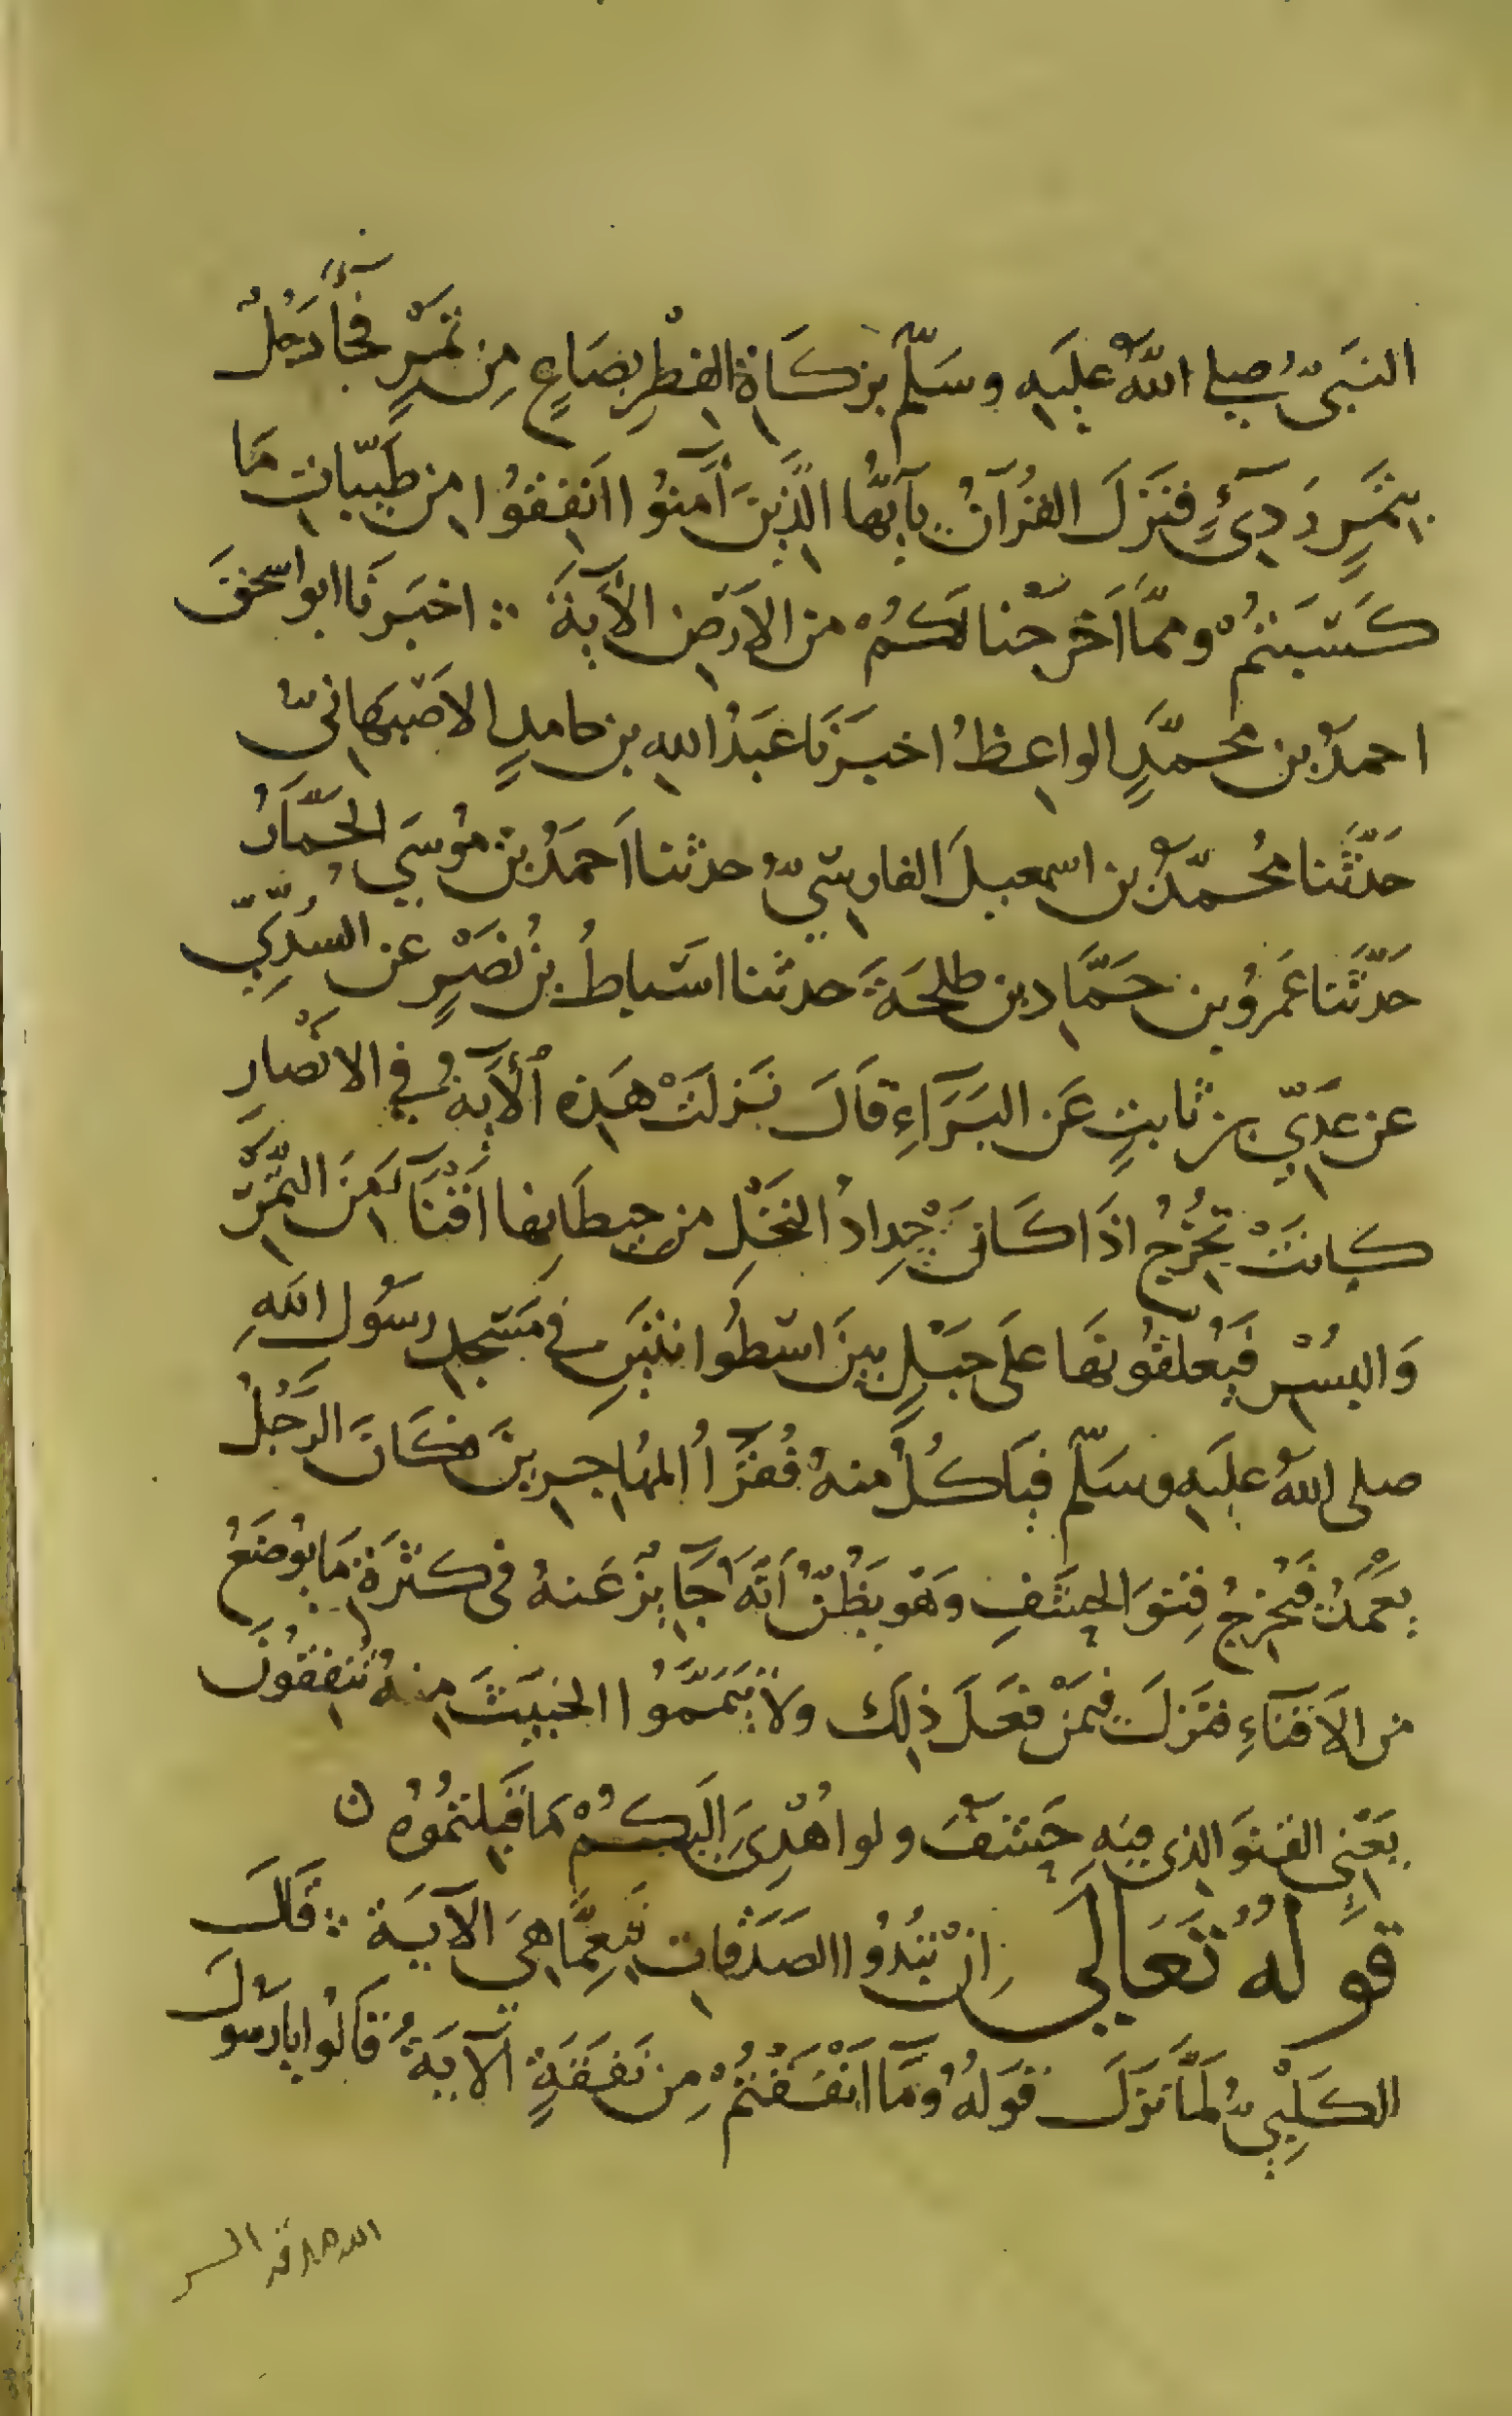 النَّبيُّ صلى اللهُ عليَهِ وسَلّم بزكَاةِ الفِطْرِ بصَاعٍ مِن تَمْرٍ فجَآءَ رَجُلٌ
بِتَمرٍ رَدِئٍ فنَزَلَ القُرآنُ يآيّهُا الَّذِينَ آمنوُا اَنفِقوُا مِن طَيِّبَاتِ مَا
كَسَبَتمُ ومِمَّا اَخرَجْنا لَكُمْ من الاَرَضِ الآيةَ ∴ اخبَرنَا ابو اسحٰقَ
احمدُ بن محمّدٍ الواعِظُ اخبرَنَا عَبدُ اللهِ بن حامدٍ الاصَبهَانيّ
حَدّثَنا مُحمّدُ بن اسمعيلَ الفارسِيّ حدثنا اَحمَدُ بن مُوسَى الحمَّارُ
حَدّثَنا عَمروُ بن حَمَّاد بن طلحَةَ حدثنا اسَباطُ بنُ نَصْرٍ عن السُدّيِّ
عن عَدِيّ بن ثابتٍ عَن البَرَآءِ قَالَ نَزلَتْ هَذِه الآيةُ في الانَصارِ
كانتْ تُخرِجُ اذَا كَانَ جِدادُ النَخْلِ من حِيطَانِها اَقْنَآءً مِنَ التمَّرْ
وَالبُسْرِ فَيُعلّقُونَهَا عَلَى حَبْلٍ بينَ اسْطُوانتَينِ في مَسْجِدِ رسُول اللهِ
صلى اللهُ عليَهِ وسَلّم فيَاكُلُ مِنهُ فُقَرآُ المُهاجِرينَ فكَانَ الرَجُلُ
يَعْمَدُ فيُخرِجُ قِنوَ الحشَفِ وَهْو يَظُنُّ اَنَّهَ جَايزٌ عَنهُ في كَثرَةِ مَا يوُضَعُ
من الاَقنَآءِ فنَزلَ فيمَنْ فعَلَ ذٰلِك ولاَ تَيَمَّمُوا الخبيَثَ مِنهُ تُنفِقوُنَ
يَعْنِي القنوَ الذى فيَهِ حَشَفٌ ولو اُهْدِىَ اِلَيكُمْ ما قَبِلتمُوُه ٥
قَولُهُ تعَالَى اِنْ تُبْدُوا الصَدَقاتِ فَنِعِمَّا هِيَ الآيَة ∴ قَالَ
الكَلبِيُّ لمَّا نَزلَ قوَلهُ وُمَآ اَنْفَقْتُمْ مِن نَفَقةٍ الآيةَ قَالُوا يا رسُولَ
الله صدقة السر